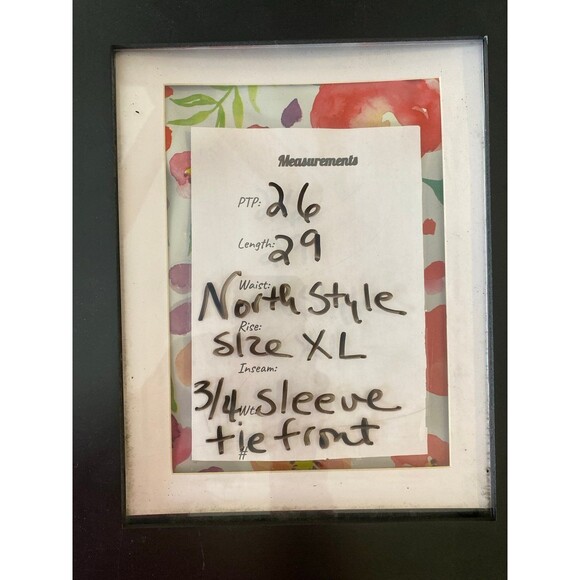 Measurements
PTP: 26
Length: 29
Waist:
North Style
Rise:
size XL
Inseam:
3/4 sleeve
Wt:
tie front
#